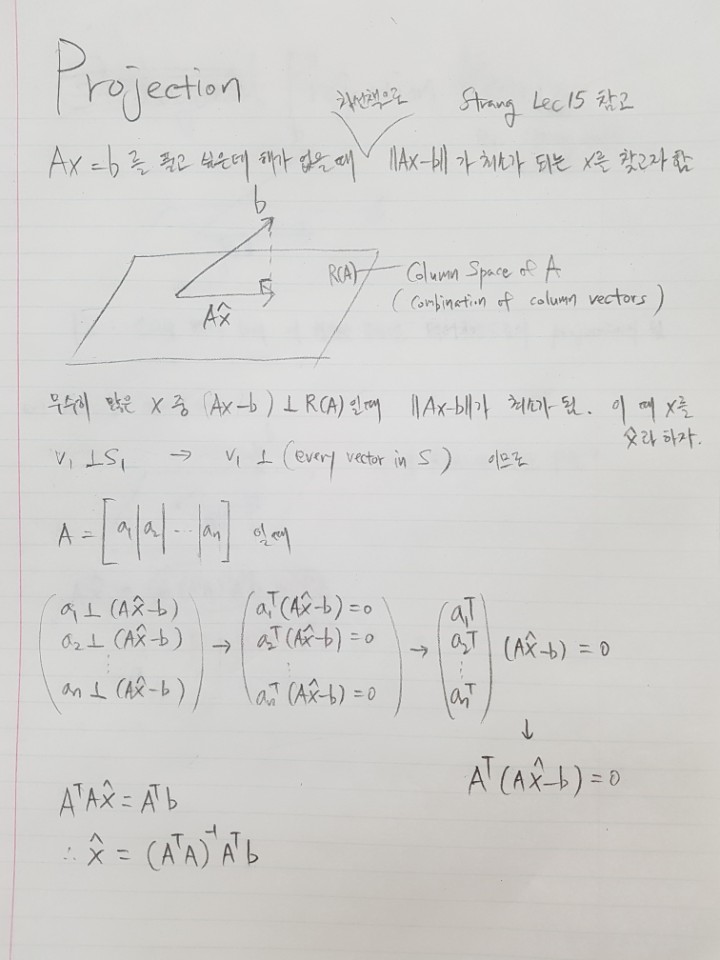 Projection
차선책으로
Strang Lec15 참고
Ax = b 를 풀고 싶은데 해가 없을 때 ∨ ||Ax-b|| 가 최소가 되는 x를 찾고자 함
b
R(A) — Column Space of A
(combination of column vectors)
Ax̂
무수히 많은 x 중 (Ax-b) ⊥ R(A) 일때 ||Ax-b||가 최소가 됨. 이 때 x를
x̂라 하자.
v₁ ⊥ S₁ → v₁ ⊥ (every vector in S) 이므로
A = [a₁|a₂|···|aₙ] 일때
(a₁ ⊥ (Ax̂-b) → (a₁ᵀ(Ax̂-b) = 0 → (a₁ᵀ
a₂ ⊥ (Ax̂-b) a₂ᵀ(Ax̂-b) = 0 a₂ᵀ (Ax̂-b) = 0
⋮ ⋮ ⋮
aₙ ⊥ (Ax̂-b)) aₙᵀ(Ax̂-b) = 0) aₙᵀ)
↓
Aᵀ(Ax̂-b) = 0
AᵀAx̂ = Aᵀb
∴ x̂ = (AᵀA)⁻¹Aᵀb